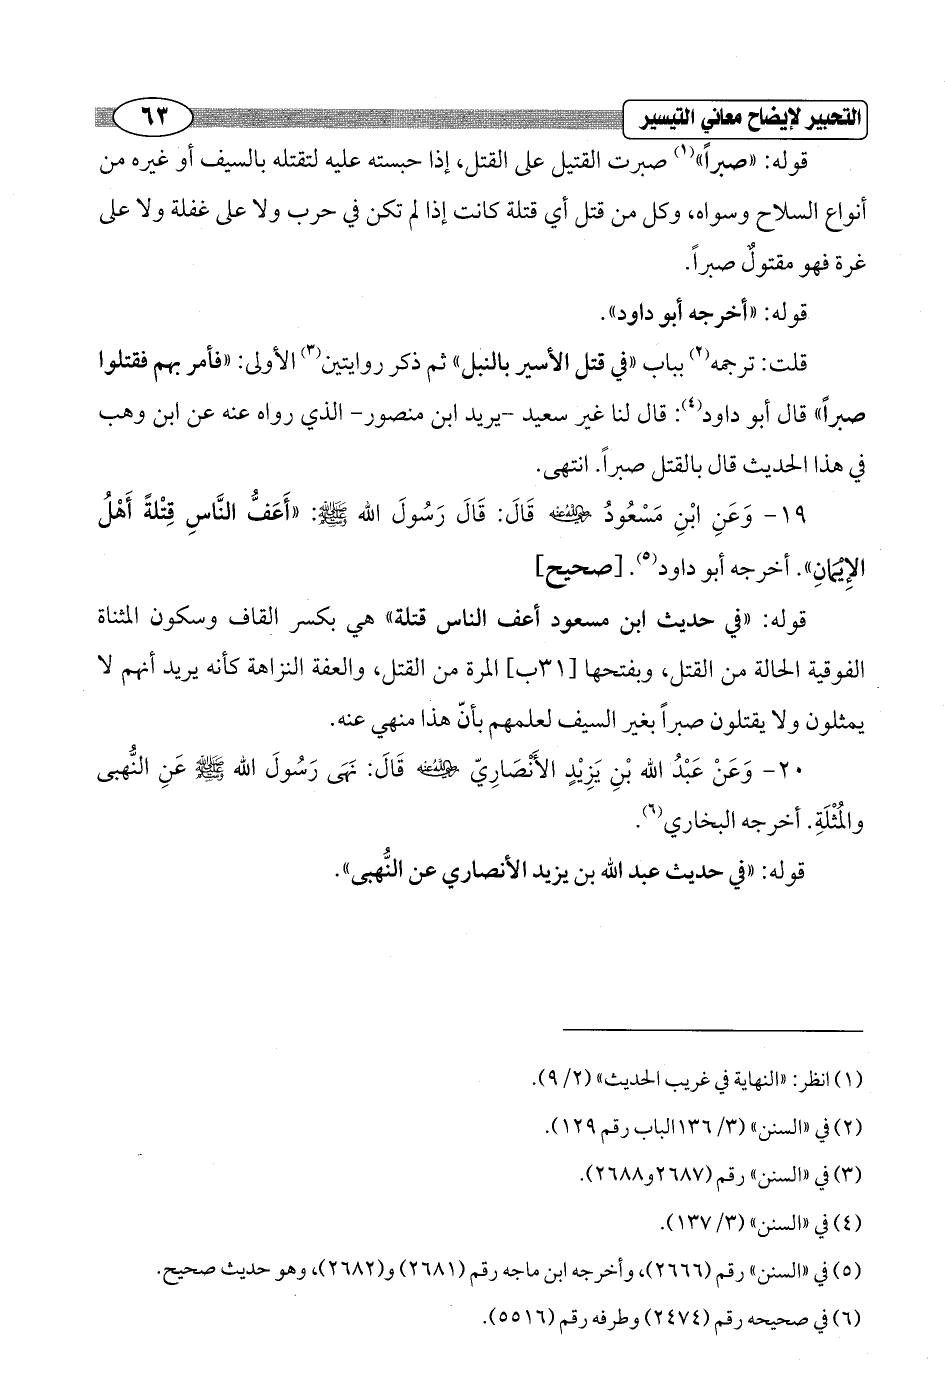 التحبير لإيضاح معاني التيسير
٦٣
قوله: «صبراً»(١) صبرت القتيل على القتل، إذا حبسته عليه لتقتله بالسيف أو غيره من
أنواع السلاح وسواه، وكل من قتل أي قتلة كانت إذا لم تكن في حرب ولا على غفلة ولا على
غرة فهو مقتولٌ صبراً.
قوله: «أخرجه أبو داود».
قلت: ترجمه(٢) بباب «في قتل الأسير بالنبل» ثم ذكر روايتين(٣) الأولى: «فأمر بهم فقتلوا
صبراً» قال أبو داود(٤): قال لنا غير سعيد -يريد ابن منصور- الذي رواه عنه عن ابن وهب
في هذا الحديث قال بالقتل صبراً. انتهى.
١٩- وَعَنِ ابْنِ مَسْعُودُ رضي الله عنه قَالَ: قَالَ رَسُولَ الله ﷺ: «أَعَفُّ النَّاسِ قِتْلَةً أَهْلُ
الإِيْمَانِ». أخرجه أبو داود(٥). [صحيح]
قوله: «في حديث ابن مسعود أعف الناس قتلة» هي بكسر القاف وسكون المثناة
الفوقية الحالة من القتل، وبفتحها [٣١ب] المرة من القتل، والعفة النزاهة كأنه يريد أنهم لا
يمثلون ولا يقتلون صبراً بغير السيف لعلمهم بأنّ هذا منهي عنه.
٢٠- وَعَنْ عَبْدُ الله بْنِ يَزِيْدٍ الأَنْصَارِيّ رضي الله عنه قَالَ: نَهَى رَسُولَ الله ﷺ عَنِ النُّهبى
والمُثْلَةِ. أخرجه البخاري(٦).
قوله: «في حديث عبد الله بن يزيد الأنصاري عن النُّهبى».
(١) انظر: «النهاية في غريب الحديث» (٢/ ٩).
(٢) في «السنن» (٣/ ١٣٦ الباب رقم ١٢٩).
(٣) في «السنن» رقم (٢٦٨٧ و٢٦٨٨).
(٤) في «السنن» (٣/ ١٣٧).
(٥) في «السنن» رقم (٢٦٦٦)، وأخرجه ابن ماجه رقم (٢٦٨١) و(٢٦٨٢)، وهو حديث صحيح.
(٦) في صحيحه رقم (٢٤٧٤) وطرفه رقم (٥٥١٦).